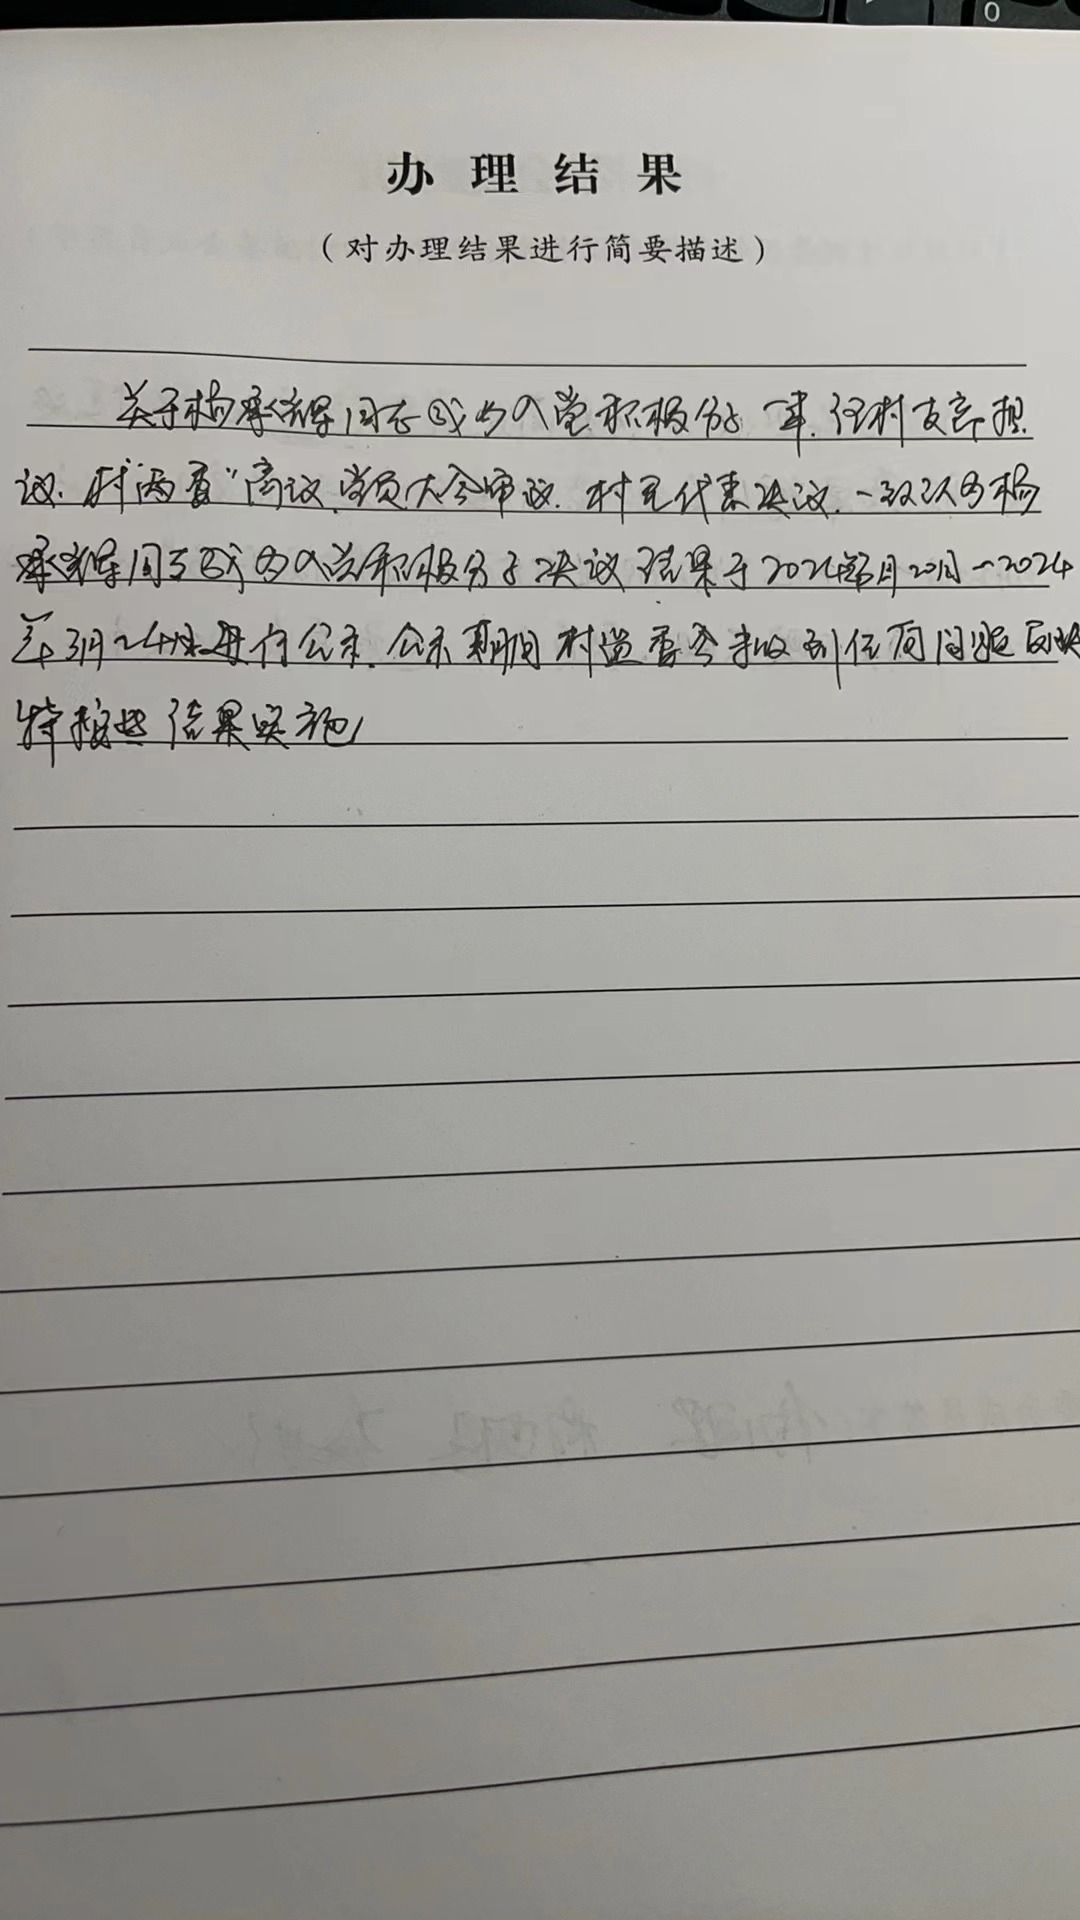 办理结果
（对办理结果进行简要描述）
关于杨承辉同志成为入党积极分子一事,经村支部提
议、村"两委"商议、党员大会审议、村民代表决议,一致认为杨
承辉同志成为入党积极分子决议结果于2024年3月20日—2024
年3月24日进行公示,公示期间村监委会未收到任何问题反映
特按此结果实施